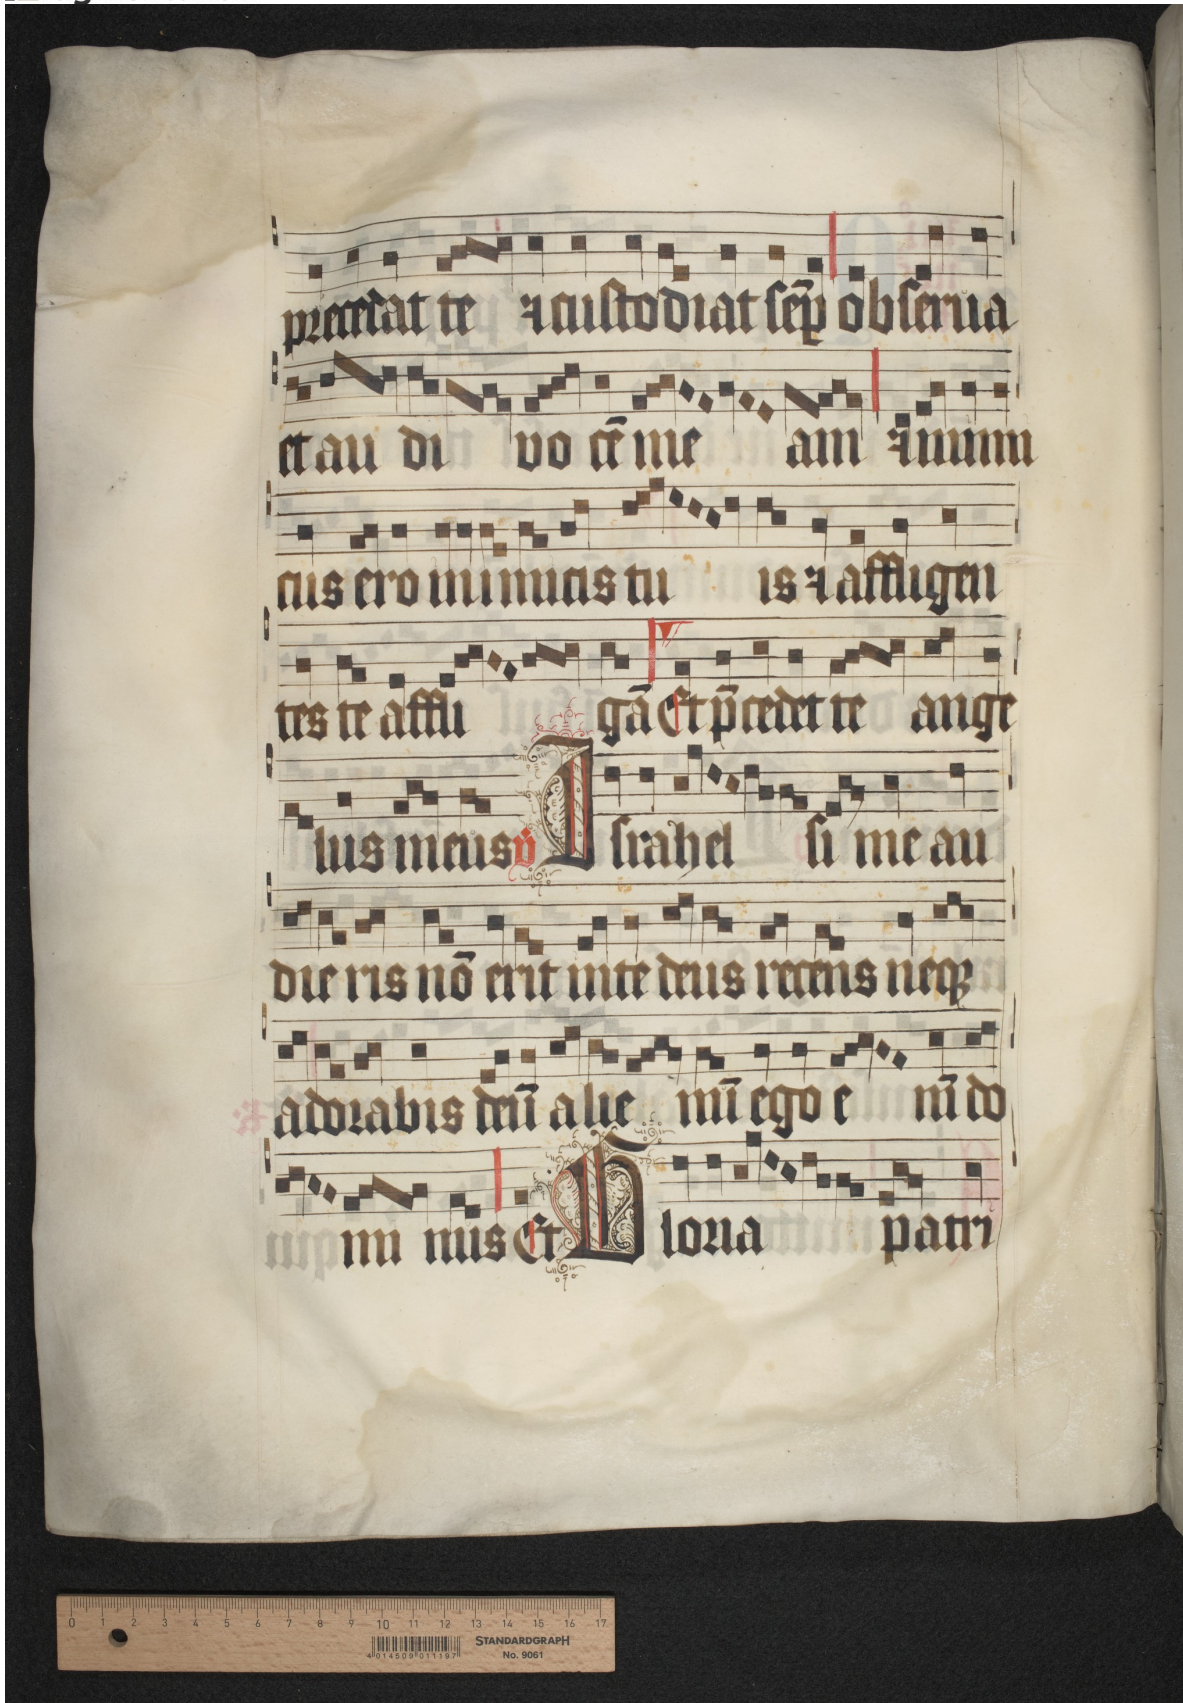 precedat te ⁊ custodiat semꝑ obserua
et au di vo cē me am ⁊ inimi
cus ero inimicis tu is ⁊ affligen
tes te affli gā Et p̄cedet te ange
lus meus v̄ Israhel si me au
die ris nō erit in te deus recens neqꝫ
adorabis deū alie nū ego e nī do
mi nus Et Gloria patri
0 1 2 3 4 5 6 7 8 9 10 11 12 13 14 15 16 17
4 014509 011197
STANDARDGRAPH
No. 9061